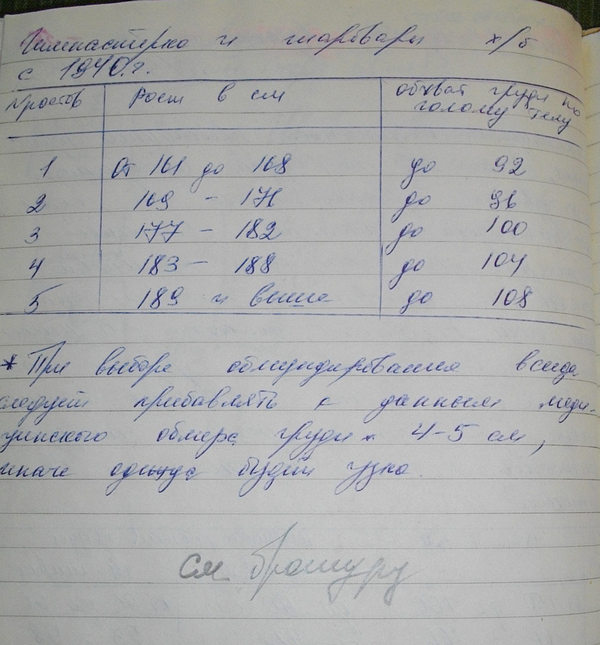 Гимнастёрка и шаровары х/б
с 1940 г.
Ростов Рост в см обхват груди по
голому телу
1 От 161 до 168 до 92
2 169 – 176 до 96
3 177 – 182 до 100
4 183 – 188 до 104
5 189 и выше до 108
* При выборе обмундирования всегда
следует прибавлять к данным меди-
цинского обмера груди 4-5 см,
иначе одежда будет узка.
см брошуру